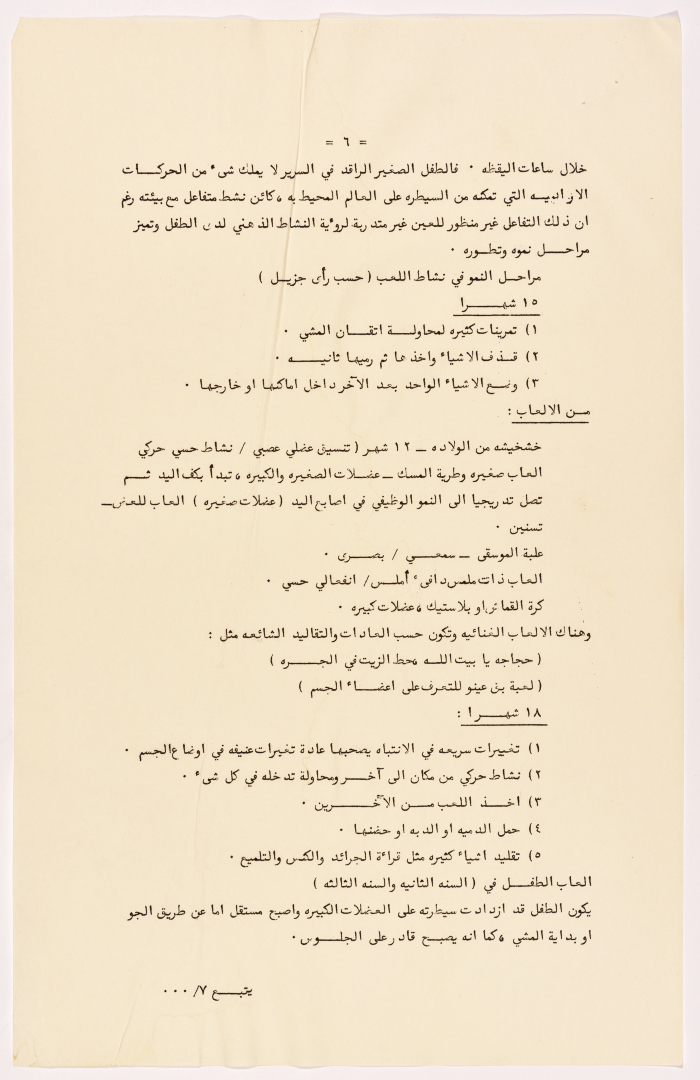 = ٦ =
خلال ساعات اليقظه ٠ فالطفل الصغير الراقد في السرير لا يملك شىء من الحركات
الاراديه التي تمكنه من السيطره على العالم المحيط به ، كائن نشط متفاعل مع بيئته رغم
ان ذلك التفاعل غير منظور للعين غير متدربة لروءية النشاط الذهني لدى الطفل وتميز
مراحل نموه وتطوره ٠
مراحل النمو في نشاط اللعب ( حسب رأى جزيل )
١٥ شهرا
١) تمرينات كثيره لمحاولة اتقان المشي ٠
٢) قذف الاشياء واخذها ثم رميها ثانيه ٠
٣) وضع الاشياء الواحد بعد الآخر داخل اماكنها او خارجها ٠
من الالعاب :
خشخيشه من الولاده ــ ١٢ شهر ( تنسيق عضلي عصبي / نشاط حسي حركي
العاب صغيره وطرية المسك ــ عضلات الصغيره والكبيره ، تبدأ بكف اليد ثم
تصل تدريجيا الى النمو الوظيفي في اصابع اليد ( عضلات صغيره ) العاب للعض ــ
تسنين ٠
علبة الموسقى ــ سمعي / بصرى ٠
العاب ذات ملمس دافىء أملس / انفعالي حسي ٠
كرة القماش او بلاستيك ، عضلات كبيره ٠
وهناك الالعاب الغنائيه وتكون حسب العادات والتقاليد الشائعه مثل :
( حجاجه يا بيت الله ، حط الزيت في الجره )
( لعبة بق عينو للتعرف على اعضاء الجسم )
١٨ شهرا :
١) تغييرات سريعه في الانتباه يصحبها عادة تغيرات عنيفه في اوضاع الجسم ٠
٢) نشاط حركي من مكان الى آخر ومحاولة تدخله في كل شىء ٠
٣) اخذ اللعب من الآخرين ٠
٤) حمل الدميه او الدبه او حضنها ٠
٥) تقليد اشياء كثيره مثل قراءة الجرائد والكنس والتلميع ٠
العاب الطفل في ( السنه الثانيه والسنه الثالثه )
يكون الطفل قد ازدادت سيطرته على العضلات الكبيره واصبح مستقل اما عن طريق الجو
او بداية المشي ، كما انه يصبح قادر على الجلوس ٠
يتبع ٧/ ٠٠٠